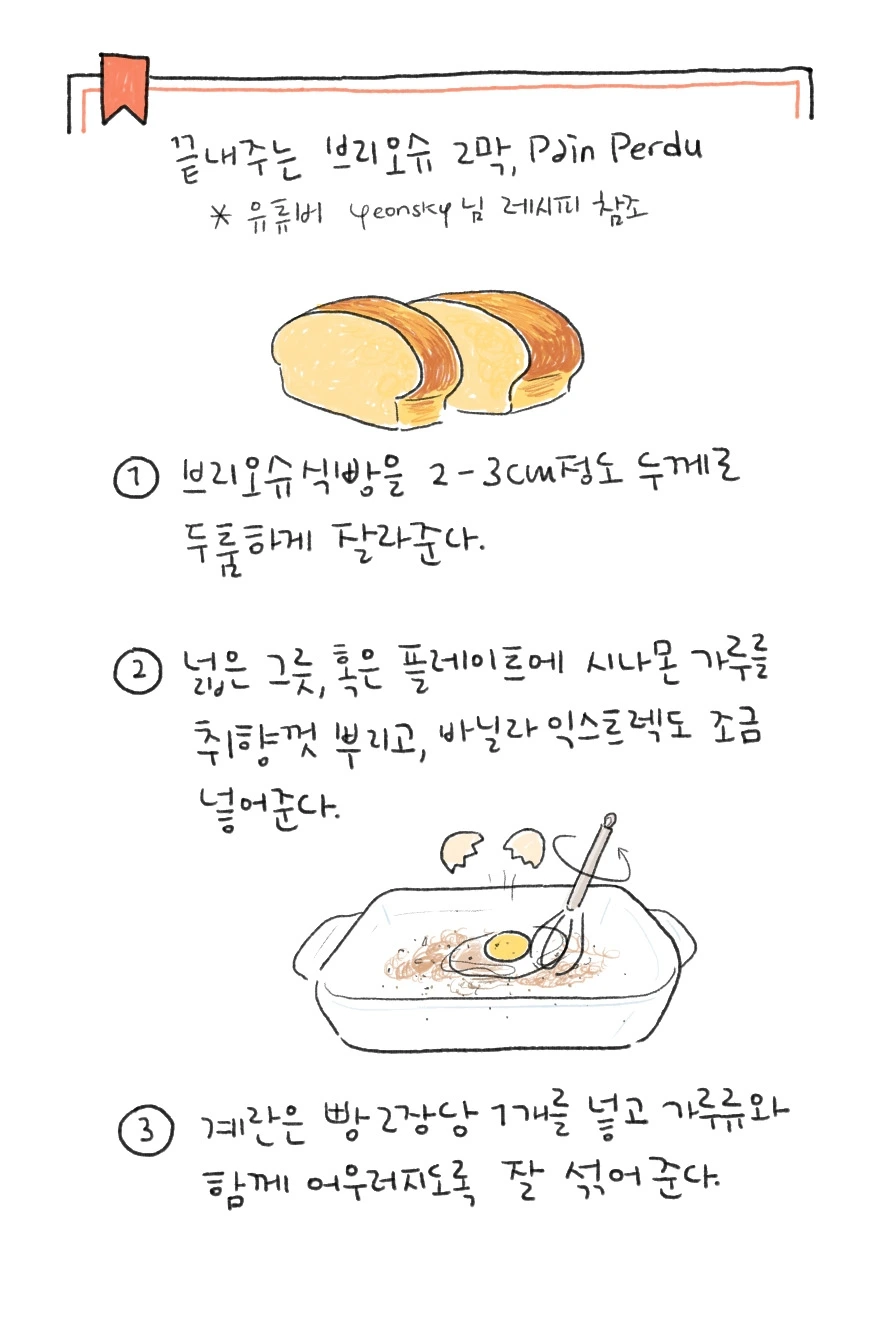 끝내주는 브리오슈 2막, Pain Perdu
* 유튜버 yeonsky 님 레시피 참조
① 브리오슈식빵을 2-3cm정도 두께로
두툼하게 잘라준다.
② 넓은 그릇, 혹은 플레이트에 시나몬 가루를
취향껏 뿌리고, 바닐라 익스트렉도 조금
넣어준다.
③ 계란은 빵 2장당 1개를 넣고 가루류와
함께 어우러지도록 잘 섞어준다.